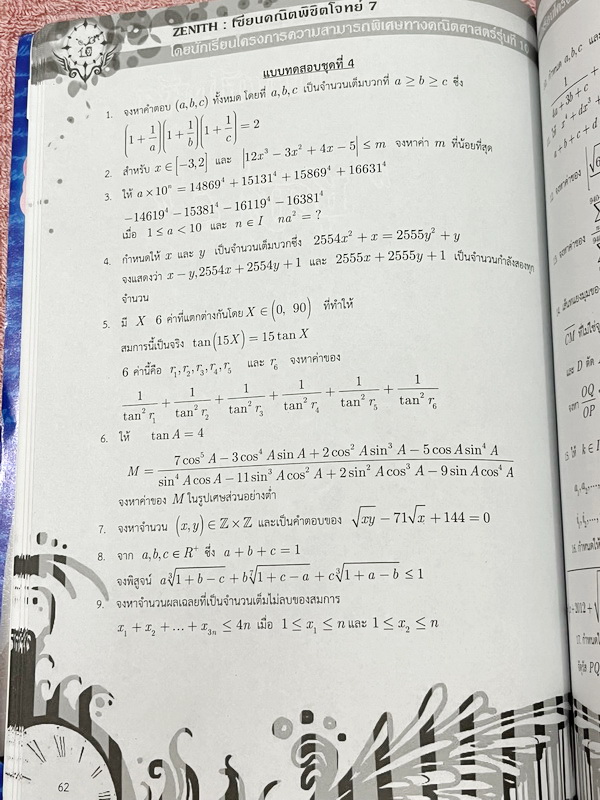 10
ZENITH : เซียนคณิตพิชิตโจทย์ 7
โดยนักเรียนโครงการความสามารถพิเศษทางคณิตศาสตร์รุ่นที่ 10
แบบทดสอบชุดที่ 4
1. จงหาคำตอบ (a,b,c) ทั้งหมด โดยที่ a,b,c เป็นจำนวนเต็มบวกที่ a ≥ b ≥ c ซึ่ง
(1 + 1/a)(1 + 1/b)(1 + 1/c) = 2
2. สำหรับ x ∈ [−3,2] และ |12x³ − 3x² + 4x − 5| ≤ m จงหาค่า m ที่น้อยที่สุด
3. ให้ a × 10ⁿ = 14869⁴ + 15131⁴ + 15869⁴ + 16631⁴
−14619⁴ − 15381⁴ − 16119⁴ − 16381⁴
เมื่อ 1 ≤ a < 10 และ n ∈ I na² = ?
4. กำหนดให้ x และ y เป็นจำนวนเต็มบวกซึ่ง 2554x² + x = 2555y² + y
จงแสดงว่า x − y, 2554x + 2554y + 1 และ 2555x + 2555y + 1 เป็นจำนวนกำลังสองทุก
จำนวน
5. มี X 6 ค่าที่แตกต่างกันโดย X ∈ (0, 90) ที่ทำให้
สมการนี้เป็นจริง tan(15X) = 15 tan X
6 ค่านี้คือ r₁, r₂, r₃, r₄, r₅ และ r₆ จงหาค่าของ
1/tan² r₁ + 1/tan² r₂ + 1/tan² r₃ + 1/tan² r₄ + 1/tan² r₅ + 1/tan² r₆
6. ให้ tan A = 4
M = (7cos⁵ A − 3cos⁴ A sin A + 2cos² A sin³ A − 5cos A sin⁴ A)/(sin⁴ A cos A − 11sin³ A cos² A + 2sin² A cos³ A − 9sin A cos⁴ A)
จงหาค่าของ M ในรูปเศษส่วนอย่างต่ำ
7. จงหาจำนวน (x,y) ∈ ℤ × ℤ และเป็นคำตอบของ √xy − 71√x + 144 = 0
8. จาก a,b,c ∈ R⁺ ซึ่ง a + b + c = 1
จงพิสูจน์ a∛(1 + b − c) + b∛(1 + c − a) + c∛(1 + a − b) ≤ 1
9. จงหาจำนวนผลเฉลยที่เป็นจำนวนเต็มไม่ลบของสมการ
x₁ + x₂ + ... + x₃ₙ ≤ 4n เมื่อ 1 ≤ x₁ ≤ n และ 1 ≤ x₂ ≤ n
62